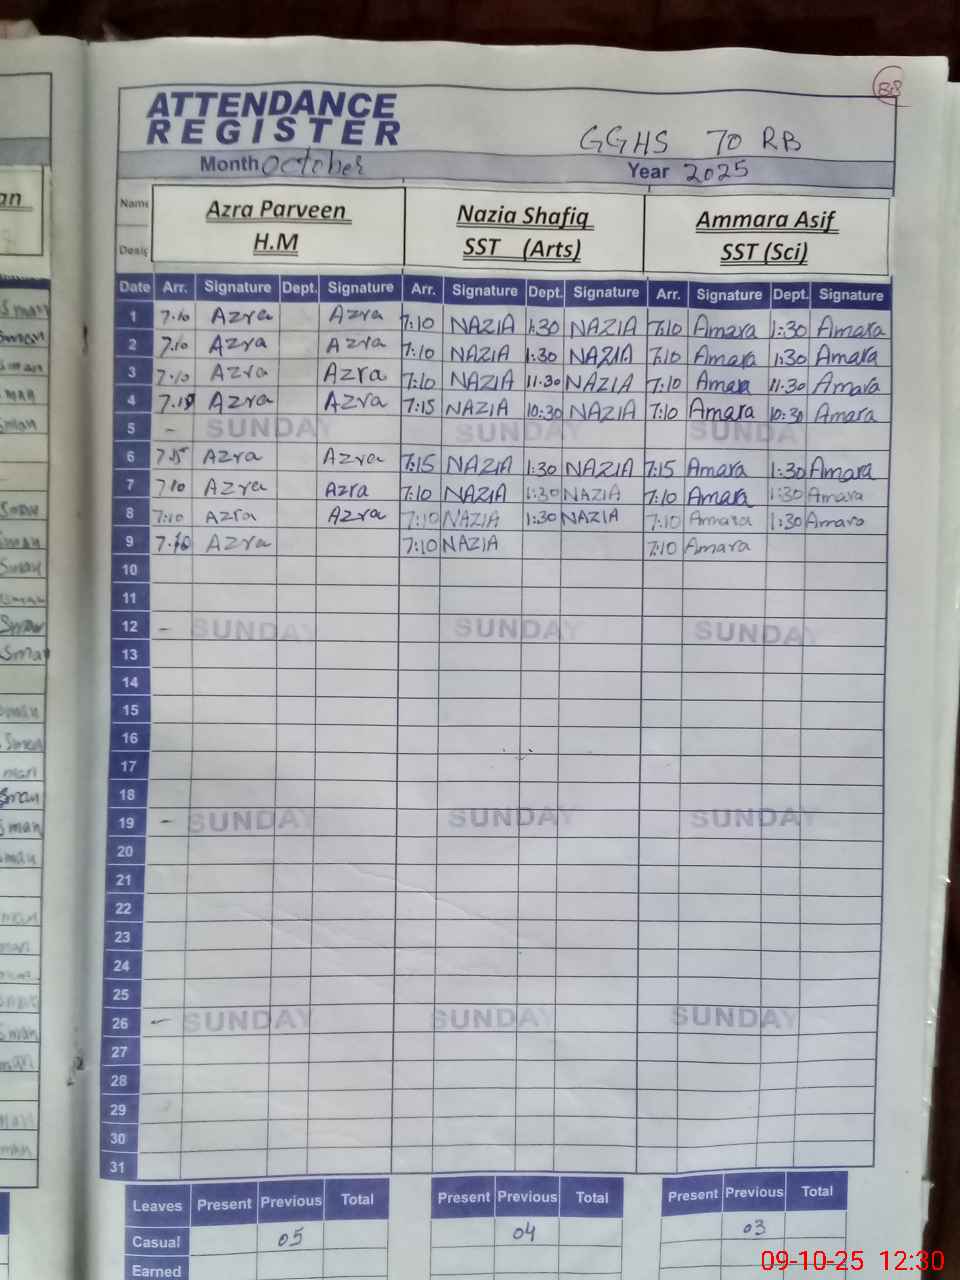 ATTENDANCE
REGISTER
GGHS 70 RB
Month October Year 2025
Name Azra Parveen Nazia Shafiq Ammara Asif
H.M SST (Arts) SST (Sci)
Date Arr. Signature Dept. Signature Arr. Signature Dept. Signature Arr. Signature Dept. Signature
1 7.10 Azra Azra 7:10 NAZIA 1:30 NAZIA 7:10 Amara 1:30 Amara
2 7.10 Azra Azra 7:10 NAZIA 1:30 NAZIA 7:10 Amara 1:30 Amara
3 7.10 Azra Azra 7:10 NAZIA 11.30 NAZIA 7:10 Amara 11.30 Amara
4 Azra Azra 7:15 NAZIA 10:30 NAZIA 7:10 Amara 10:30 Amara
5 - SUNDAY SUNDAY SUNDAY
6 7.15 Azra Azra 7:15 NAZIA 1:30 NAZIA 7:15 Amara 1:30 Amara
7 7:10 Azra Azra 7:10 NAZIA 1:30 NAZIA 7:10 Amara 1:30 Amara
8 7:10 Azra Azra 7:10 NAZIA 1:30 NAZIA 7:10 Amara 1:30 Amara
9 7.10 Azra 7:10 NAZIA 7:10 Amara
10
11
12 - SUNDAY SUNDAY SUNDAY
13
14
15
16
17
18
19 - SUNDAY SUNDAY SUNDAY
20
21
22
23
24
25
26 - SUNDAY SUNDAY SUNDAY
27
28
29
30
31
Leaves Present Previous Total Present Previous Total Present Previous Total
Casual 05 04 03
Earned
09-10-25 12:30